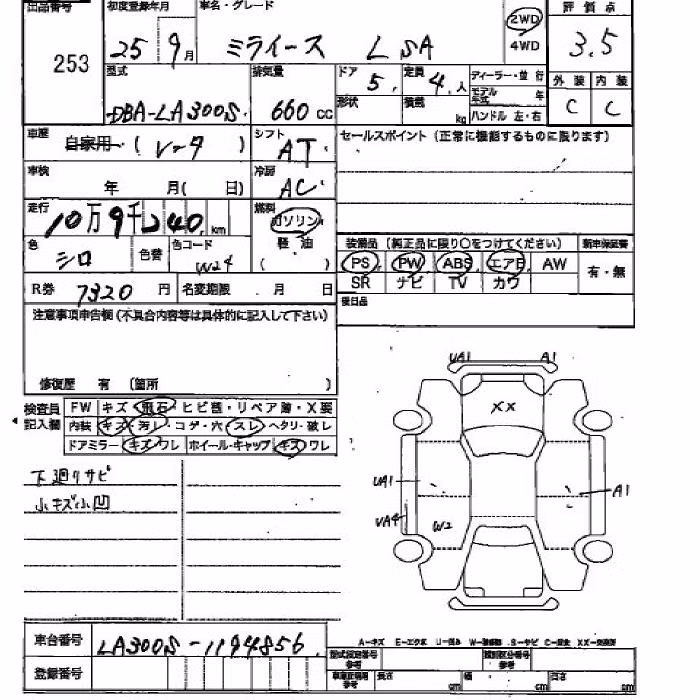 出品番号 初度登録年月 車名・グレード 評価点
253 25 9月 ミライース L SA 2WD 4WD 3.5
型式 排気量 ドア 5 定員 4人 ディーラー・並行 外装 内装
DBA-LA300S 660cc 形状 積載 kg モデル年式 年 C C
ハンドル 左・右
車歴 自家用 (レータ) シフト AT セールスポイント(正常に機能するものに限ります)
車検 年 月( 日) 冷房 AC
走行 10万9千240km 燃料 ガソリン 軽・油 ( )
装備品(純正品に限り○をつけてください) 新車保証書
色 シロ 色替 色コード W24
PS PW ABS エアB AW 有・無
SR ナビ TV カワ
R券 7320円 名変期限 月 日
後日品
注意事項申告欄(不具合内容等は具体的に記入して下さい)
修復歴 有 (箇所
検査員記入欄 FW キズ・飛石・ヒビ割・リペア跡・X要
内装 キズ・汚レ・コゲ・穴・スレ・ヘタリ・破レ
ドアミラー キズ・ワレ ホイール・キャップ キズ・ワレ
下廻りサビ
小キズ小凹
UA1 A1
XX
UA1 A1
UA4 W2
車台番号 LA300S-1194856
登録番号
A-キズ E-エクボ U-凹み W-補修跡 S-サビ C-腐食 XX-交換済
型式指定番号 参考 類別区分番号 参考
長さ cm 幅 cm 高さ cm